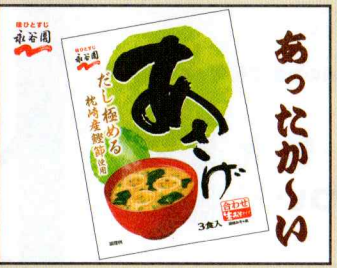 味ひとすじ
永谷園
味ひとすじ
永谷園
あさげ
だし極める
枕崎産鰹節使用
合わせ
3食入
調理例
あったか〜い